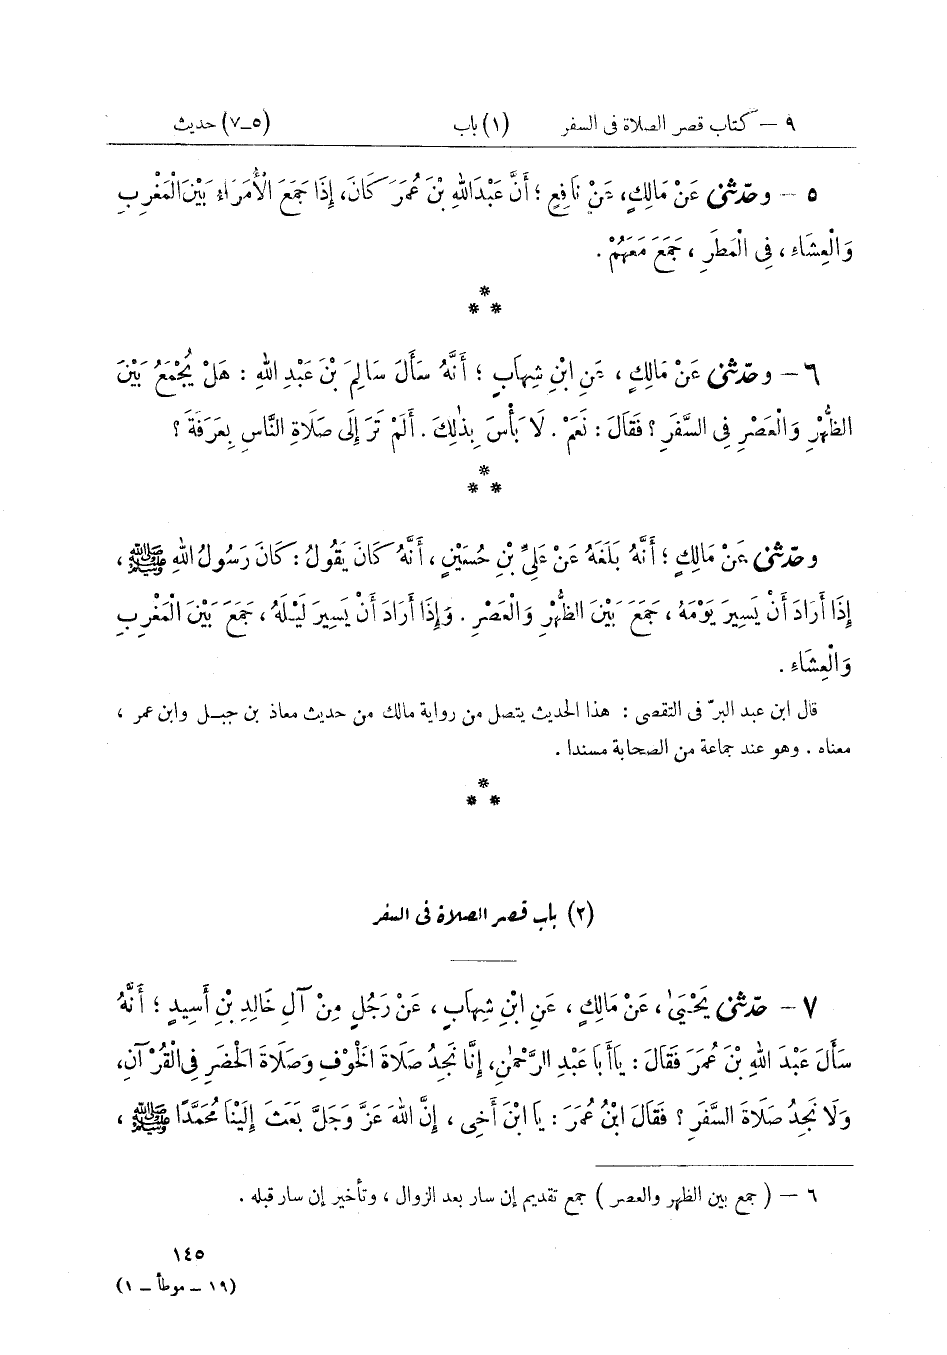 ٩ – كتاب قصر الصلاة فى السفر (١) باب (٥–٧) حديث
٥ – وحدّثنى عَنْ مَالِكٍ، عَنْ نَافِعٍ ؛ أَنَّ عَبْدَ اللهِ بْنَ عُمَرَ كَانَ، إِذَا جَمَعَ الْأُمَرَاءُ بَيْنَ الْمَغْرِبِ
وَالْعِشَاءِ ، فِى الْمَطَرِ ، جَمَعَ مَعَهُمْ .
*
* *
٦ – وحدّثنى عَنْ مَالِكٍ ، عَنِ ابْنِ شِهَابٍ ؛ أَنَّهُ سَأَلَ سَالِمَ بْنَ عَبْدِ اللهِ : هَلْ يُجْمَعُ بَيْنَ
الظُّهْرِ وَالْعَصْرِ فِى السَّفَرِ ؟ فَقَالَ : نَعَمْ . لَا بَأْسَ بِذٰلِكَ . أَلَمْ تَرَ إِلَى صَلَاةِ النَّاسِ بِعَرَفَةَ ؟
*
* *
وحدّثنى عَنْ مَالِكٍ ؛ أَنَّهُ بَلَغَهُ عَنْ عَلِيِّ بْنِ حُسَيْنٍ ، أَنَّهُ كَانَ يَقُولُ : كَانَ رَسُولُ اللهِ ﷺ ،
إِذَا أَرَادَ أَنْ يَسِيرَ يَوْمَهُ ، جَمَعَ بَيْنَ الظُّهْرِ وَالْعَصْرِ . وَإِذَا أَرَادَ أَنْ يَسِيرَ لَيْلَهُ ، جَمَعَ بَيْنَ الْمَغْرِبِ
وَالْعِشَاءِ .
قال ابن عبد البرّ فى التقصى : هذا الحديث يتصل من رواية مالك من حديث معاذ بن جبل وابن عمر ،
معناه . وهو عند جماعة من الصحابة مسندا .
*
* *
(٢) باب قصر الصلاة فى السفر
٧ – حدّثنى يَحْيَىٰ ، عَنْ مَالِكٍ ، عَنِ ابْنِ شِهَابٍ ، عَنْ رَجُلٍ مِنْ آلِ خَالِدِ بْنِ أَسِيدٍ ؛ أَنَّهُ
سَأَلَ عَبْدَ اللهِ بْنَ عُمَرَ فَقَالَ : يَا أَبَا عَبْدِ الرَّحْمٰنِ، إِنَّا نَجِدُ صَلَاةَ الْخَوْفِ وَصَلَاةَ الْحَضَرِ فِى الْقُرْآنِ،
وَلَا نَجِدُ صَلَاةَ السَّفَرِ ؟ فَقَالَ ابْنُ عُمَرَ : يَا ابْنَ أَخِى ، إِنَّ اللهَ عَزَّ وَجَلَّ بَعَثَ إِلَيْنَا مُحَمَّدًا ﷺ ،
٦ – ( جمع بين الظهر والعصر ) جمع تقديم إن سار بعد الزوال ، وتأخير إن سار قبله .
١٤٥
(١٩ – موطأ – ١)